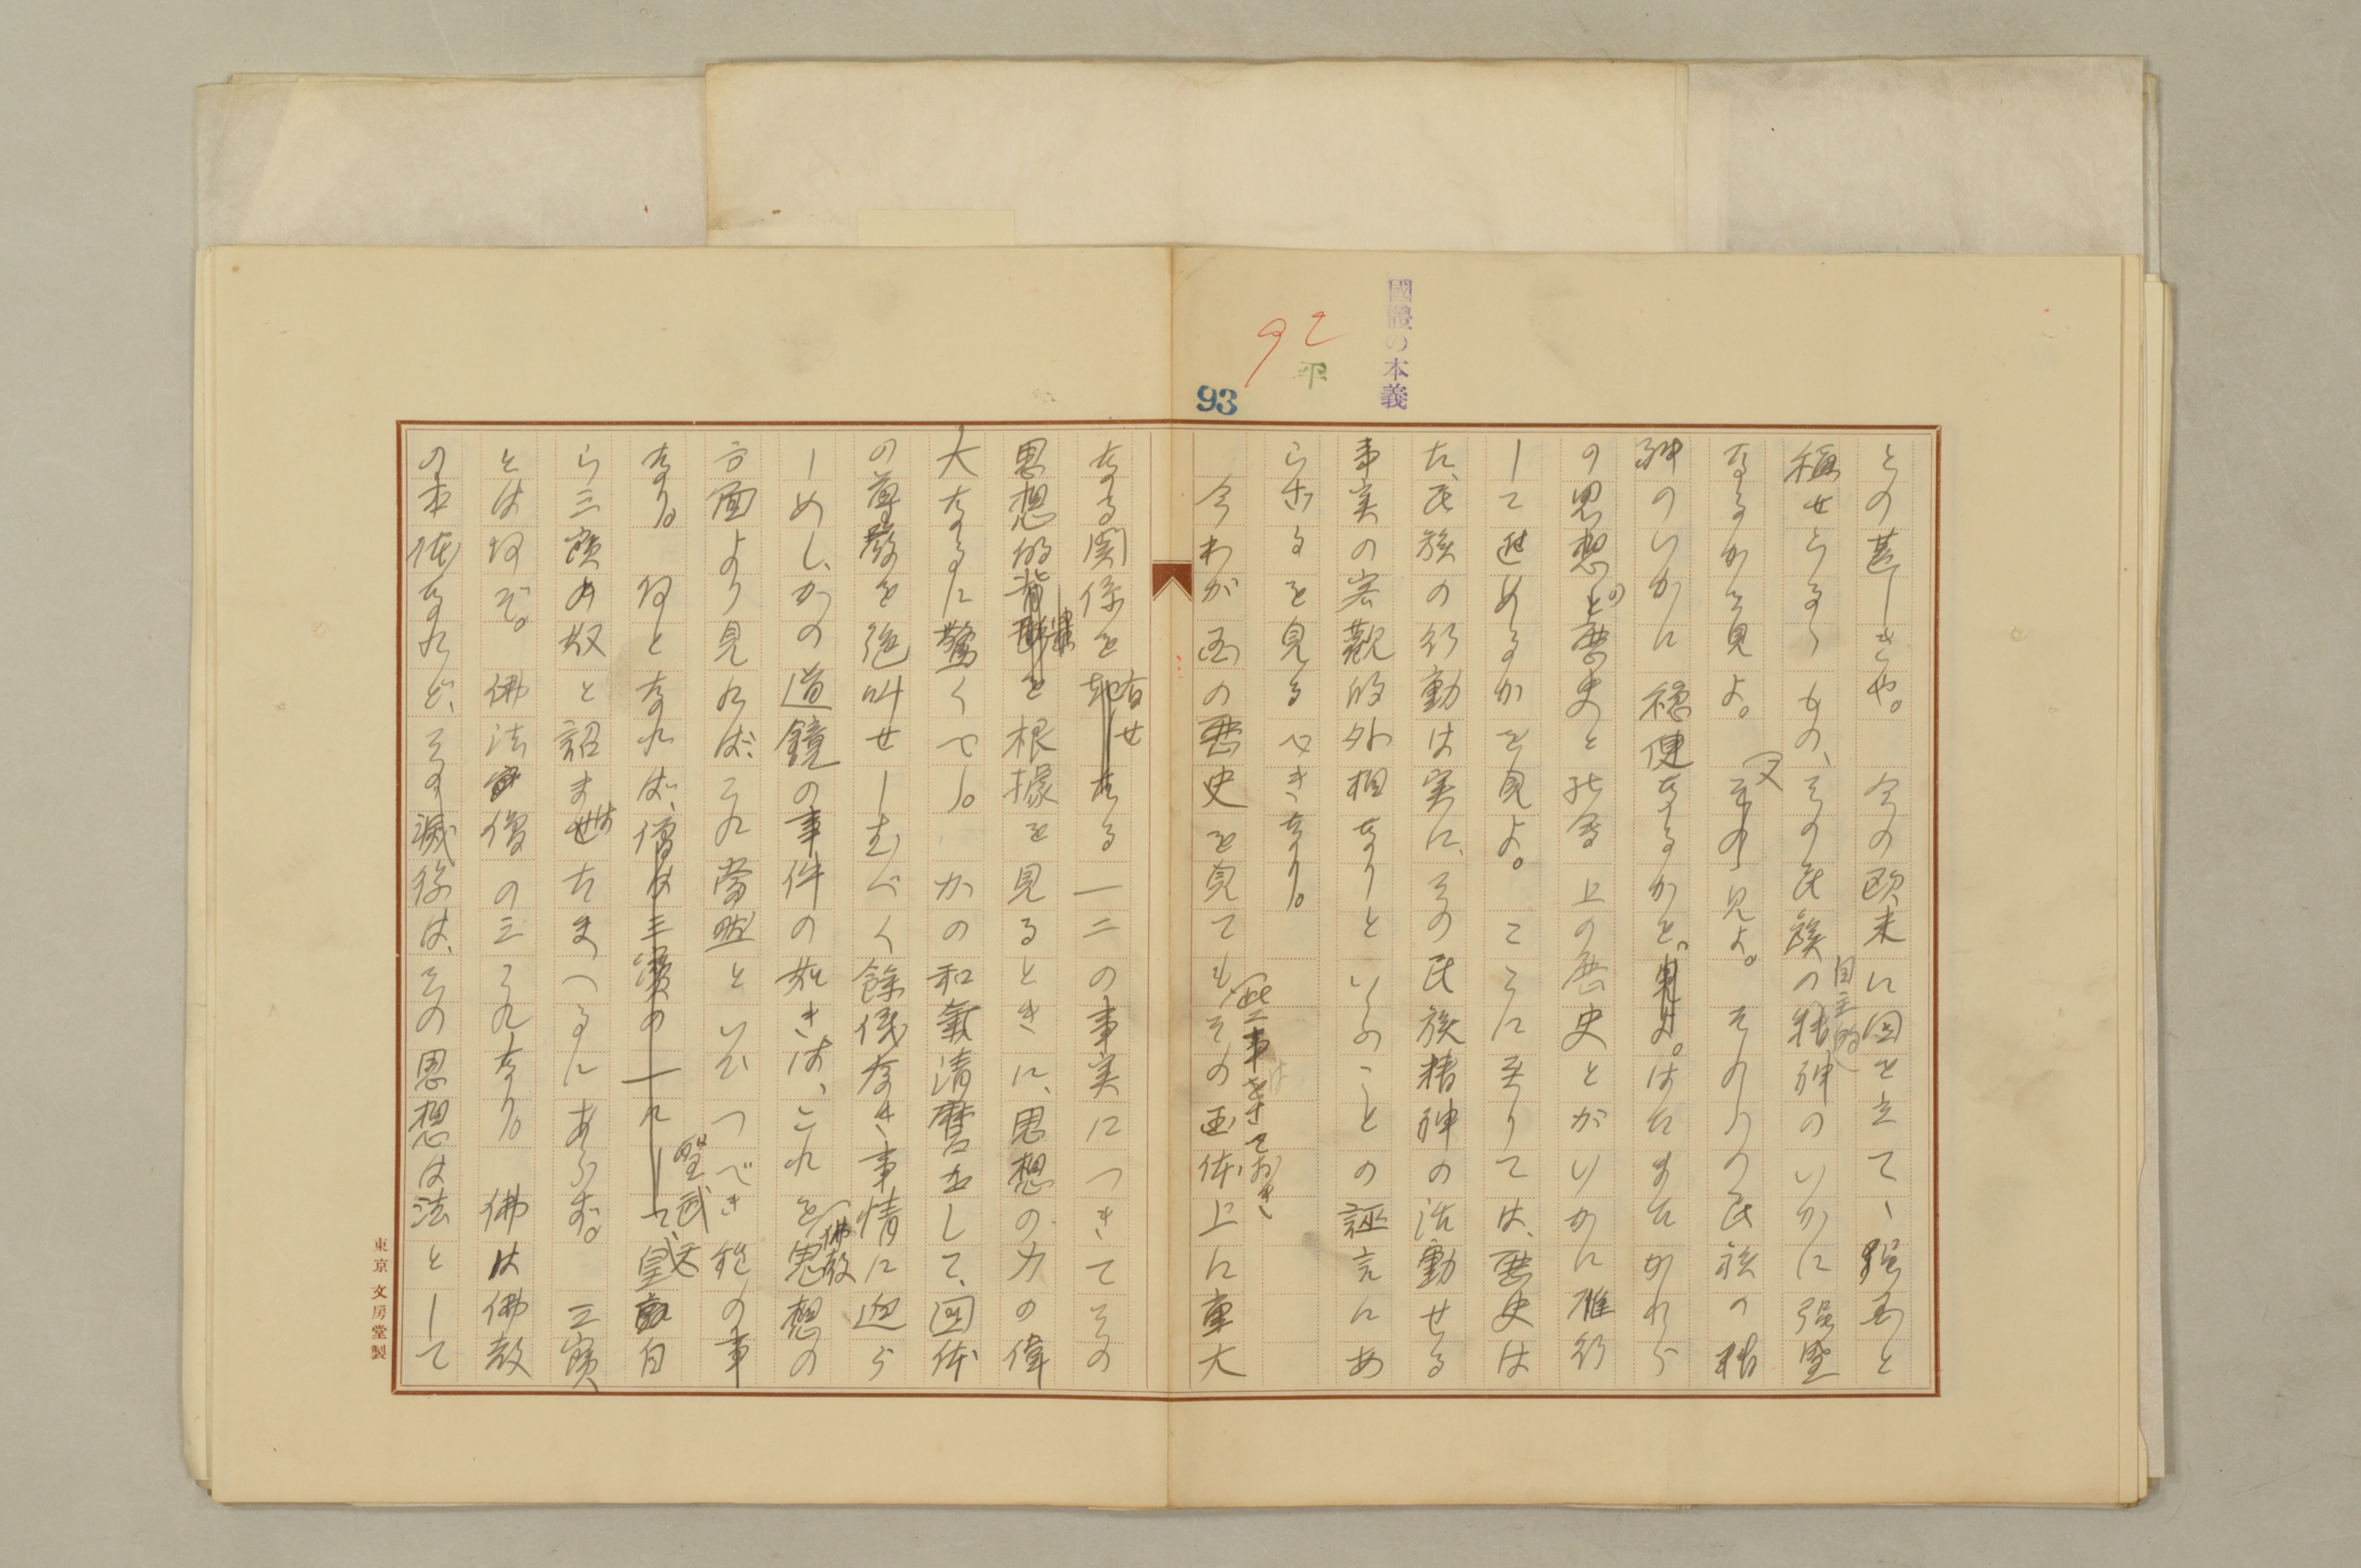 國體の本義
92
平
93
との甚しきや。今の欧米に国を立て、強国と
称せらるゝもの、その民族の自主的精神のいかに强盛
なるかを見よ。又見よ。それらの民族の精
神のいかに穏健なるかを。はたまたかれら
の思想の歴史と社会上の歴史とがいかに雁行
して進めるかを見よ。ここに至りては、歴史は
た、民族の行動は実に、その民族精神の活動せる
事実の客觀的外相なりといふことの誣言にあ
らざるを見るべきなり。
今わが国の歴史を見ても、その国体上に重大
此事はさておき、
なる関係を有せたる一二の事実につきてその
思想的根據を見るときに、思想の力の偉
大なるに驚くべし。かの和氣清麿をして、国体
の尊嚴を絶叫せしむべく餘儀なき事情に迫ら
しめし、かの道鏡の事件の如きは、これを佛教思想の
方面より見れば、これ當然といひつべき程の事
なり。何となれば、聖武天皇自
ら三寶の奴と詔ませたまへるにあらず。三寶
とは何ぞ。佛法僧の三これなり。佛は佛教
の本体なれど、その滅後は、その思想は法として
東京 文房堂製